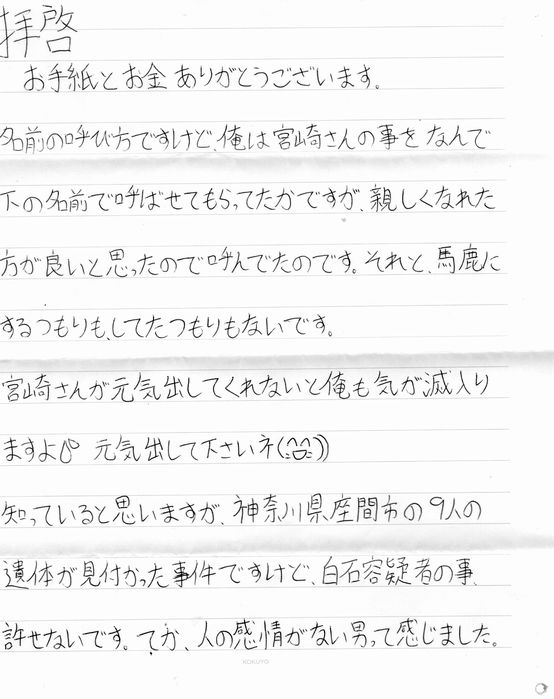 拝啓
お手紙とお金ありがとうございます。
名前の呼び方ですけど、俺は宮崎さんの事をなんで
下の名前で呼ばせてもらってたかですが、親しくなれた
方が良いと思ったので呼んでたのです。それと、馬鹿に
するつもりも、してたつもりもないです。
宮崎さんが元気出してくれないと俺も気が滅入り
ますよ 元気出して下さいネ
知っていると思いますが、神奈川県座間市の9人の
遺体が見付かった事件ですけど、白石容疑者の事、
許せないです。てか、人の感情がない男って感じました。
KOKUYO